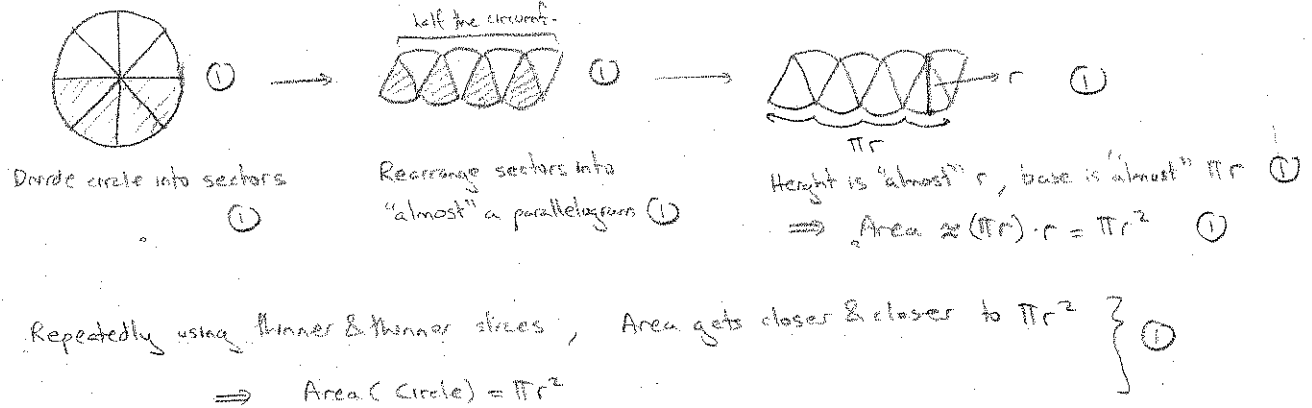 half the circumf.
① → ① → r ①
πr
Divide circle into sectors
①
Rearrange sectors into
"almost" a parallelogram ①
Height is "almost" r, base is "almost" πr ①
⇒ Area ≈ (πr)·r = πr² ①
Repeatedly using thinner & thinner slices, Area gets closer & closer to πr² } ①
⇒ Area (Circle) = πr²